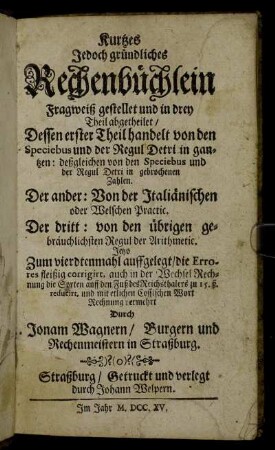 Kurtzes
Jedoch gründliches
Rechenbüchlein
Fragweiß gestellet und in drey
Theil abgetheilet /
Dessen erster Theil handelt von den
Speciebus und der Regul Detri in gan-
tzen: deßgleichen von den Speciebus und
der Regul Detri in gebrochenen
Zahlen.
Der ander: Von der Italiänischen
oder Welschen Practic.
Der dritt: von den übrigen ge-
bräuchlichsten Regul der Arithmetic.
Jetzo
Zum vierdtenmahl auffgelegt / die Erro-
res fleißig corrigirt, auch in der Wechsel Rech-
nung die Sorten auff den Fuß des Reichsthalers zu 15. ß.
reducirt, und mit etlichen Cossischen Wort
Rechnung vermehrt
Durch
Jonam Wagnern / Burgern und
Rechenmeistern in Straßburg.
Straßburg / Getruckt und verlegt
durch Johann Welpern.
Im Jahr M. DCC. XV.